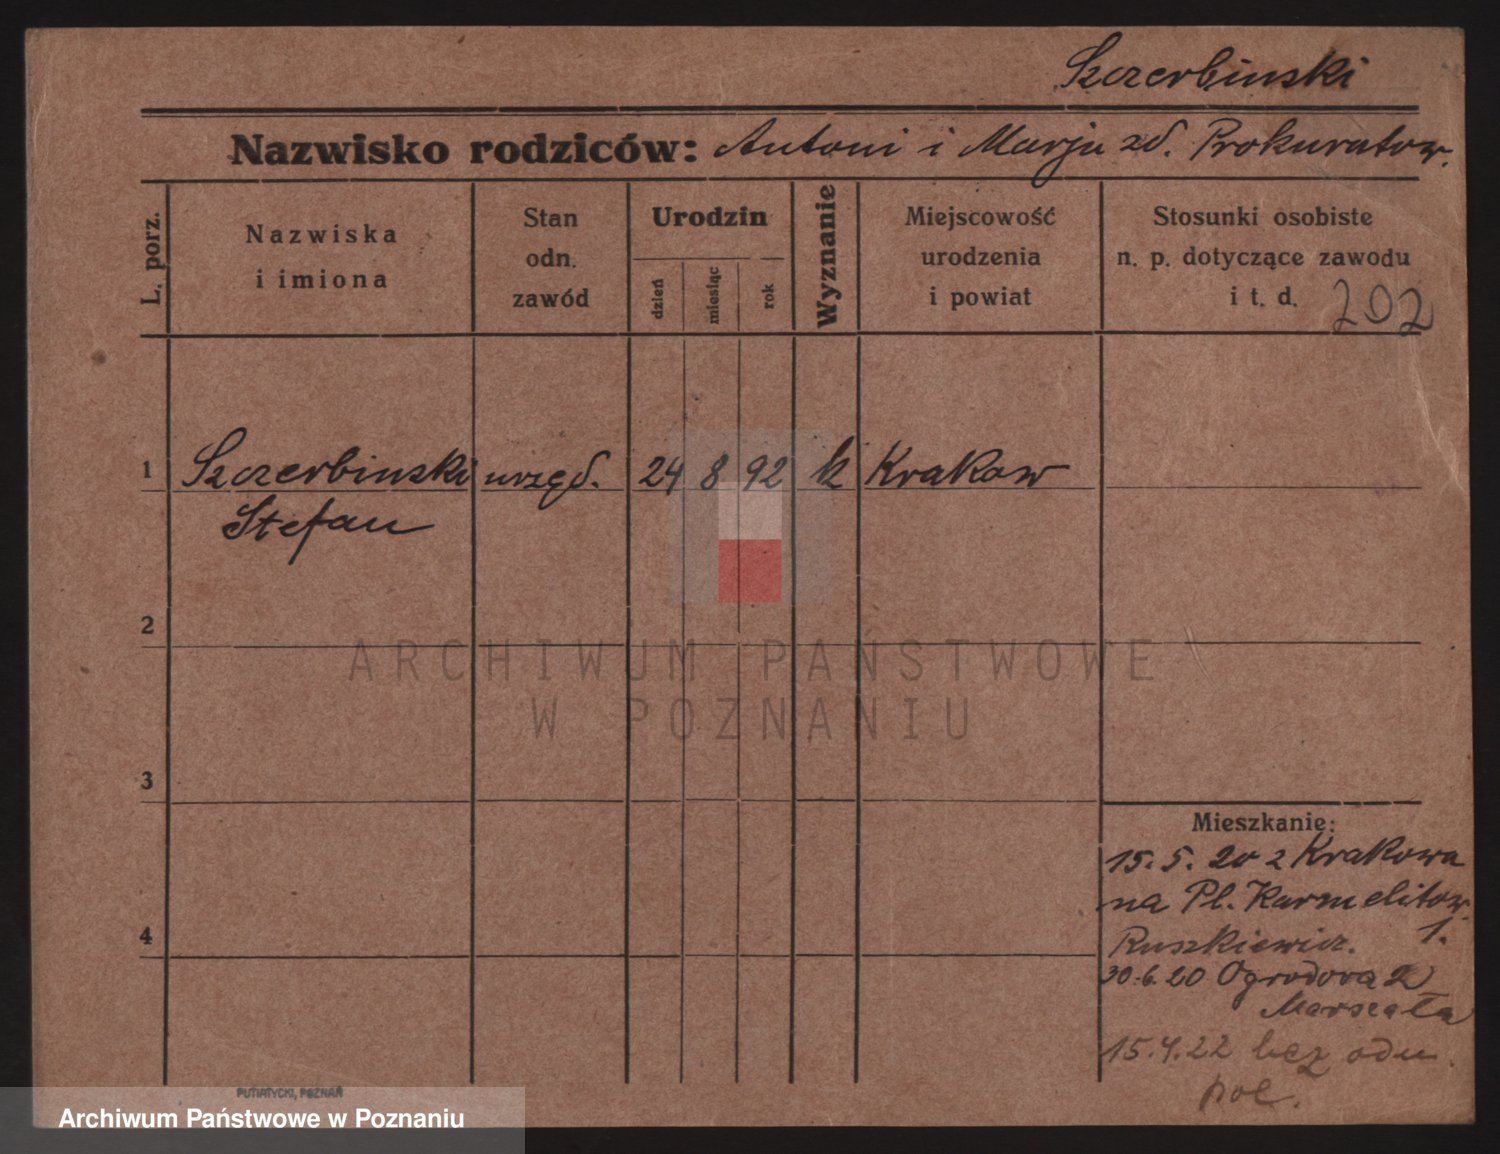 Szczerbinski
Nazwisko rodziców: Antoni i Marja zd. Prokuratow.
L. porz.
Nazwiska
i imiona
Stan
odn.
zawód
Urodzin
dzień
miesiąc
rok
Wyznanie
Miejscowość
urodzenia
i powiat
Stosunki osobiste
n. p. dotyczące zawodu
i t. d.
202
1 Szczerbinski urzęd. 24 8 92 k Krakow
Stefan
2
3
4
Mieszkanie:
15. 5. 20 z Krakowa
na Pl. Karmelitow.
1.
Ruszkiewicz.
30.6.20 Ogrodowa 2
15.4.22 bez odm.
pol.
PUTIATYCKI, POZNAŃ
ARCHIWUM PAŃSTWOWE
W POZNANIU
Archiwum Państwowe w Poznaniu